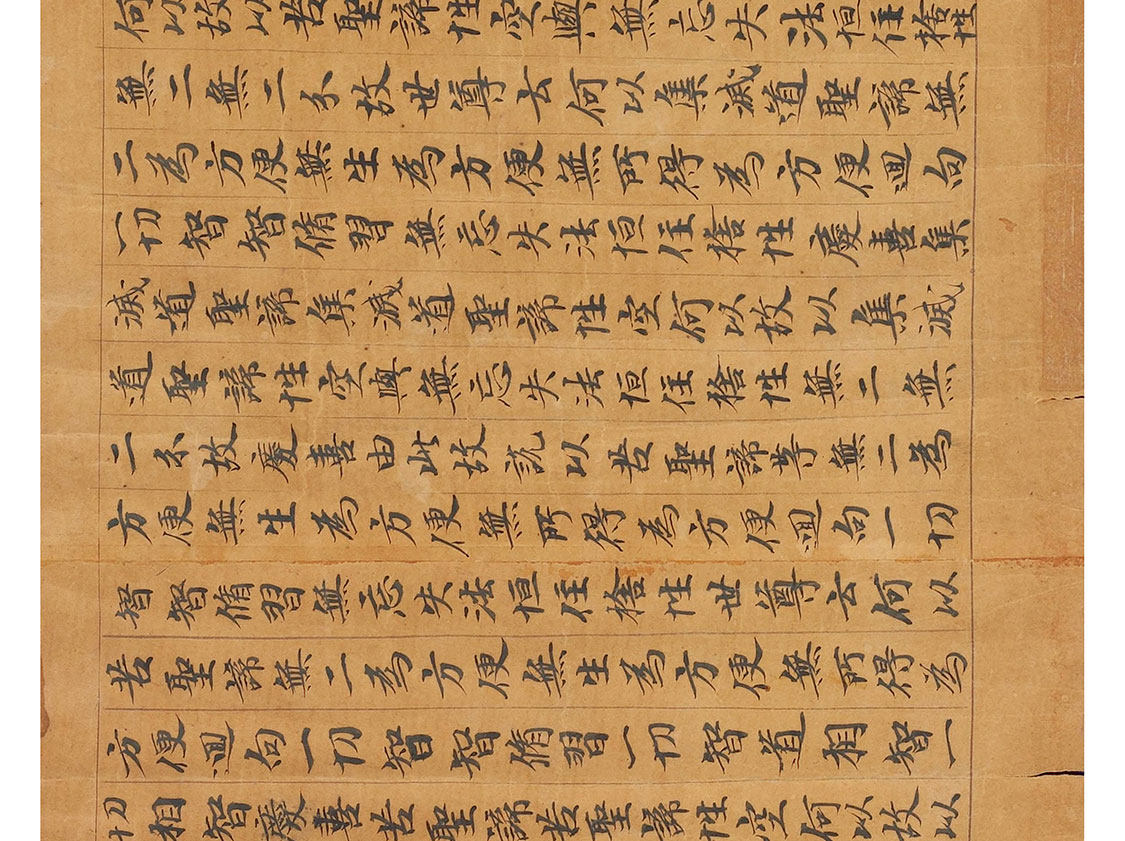 何以故以苦聖諦性空與無忘失法恒住捨性
無二無二尒故世尊云何以集滅道聖諦無
二為方便無生為方便無所得為方便迴向
一切智智脩習無忘失法恒住捨性慶喜集
滅道聖諦集滅道聖諦性空何以故以集滅
道聖諦性空與無忘失法恒住捨性無二無
二尒故慶喜由此故說以苦聖諦等無二為
方便無生為方便無所得為方便迴向一切
智智脩習無忘失法恒住捨性世尊云何以
苦聖諦無二為方便無生為方便無所得為
方便迴向一切智智脩習一切智道相智一
切相智慶喜苦聖諦苦聖諦性空何以故以